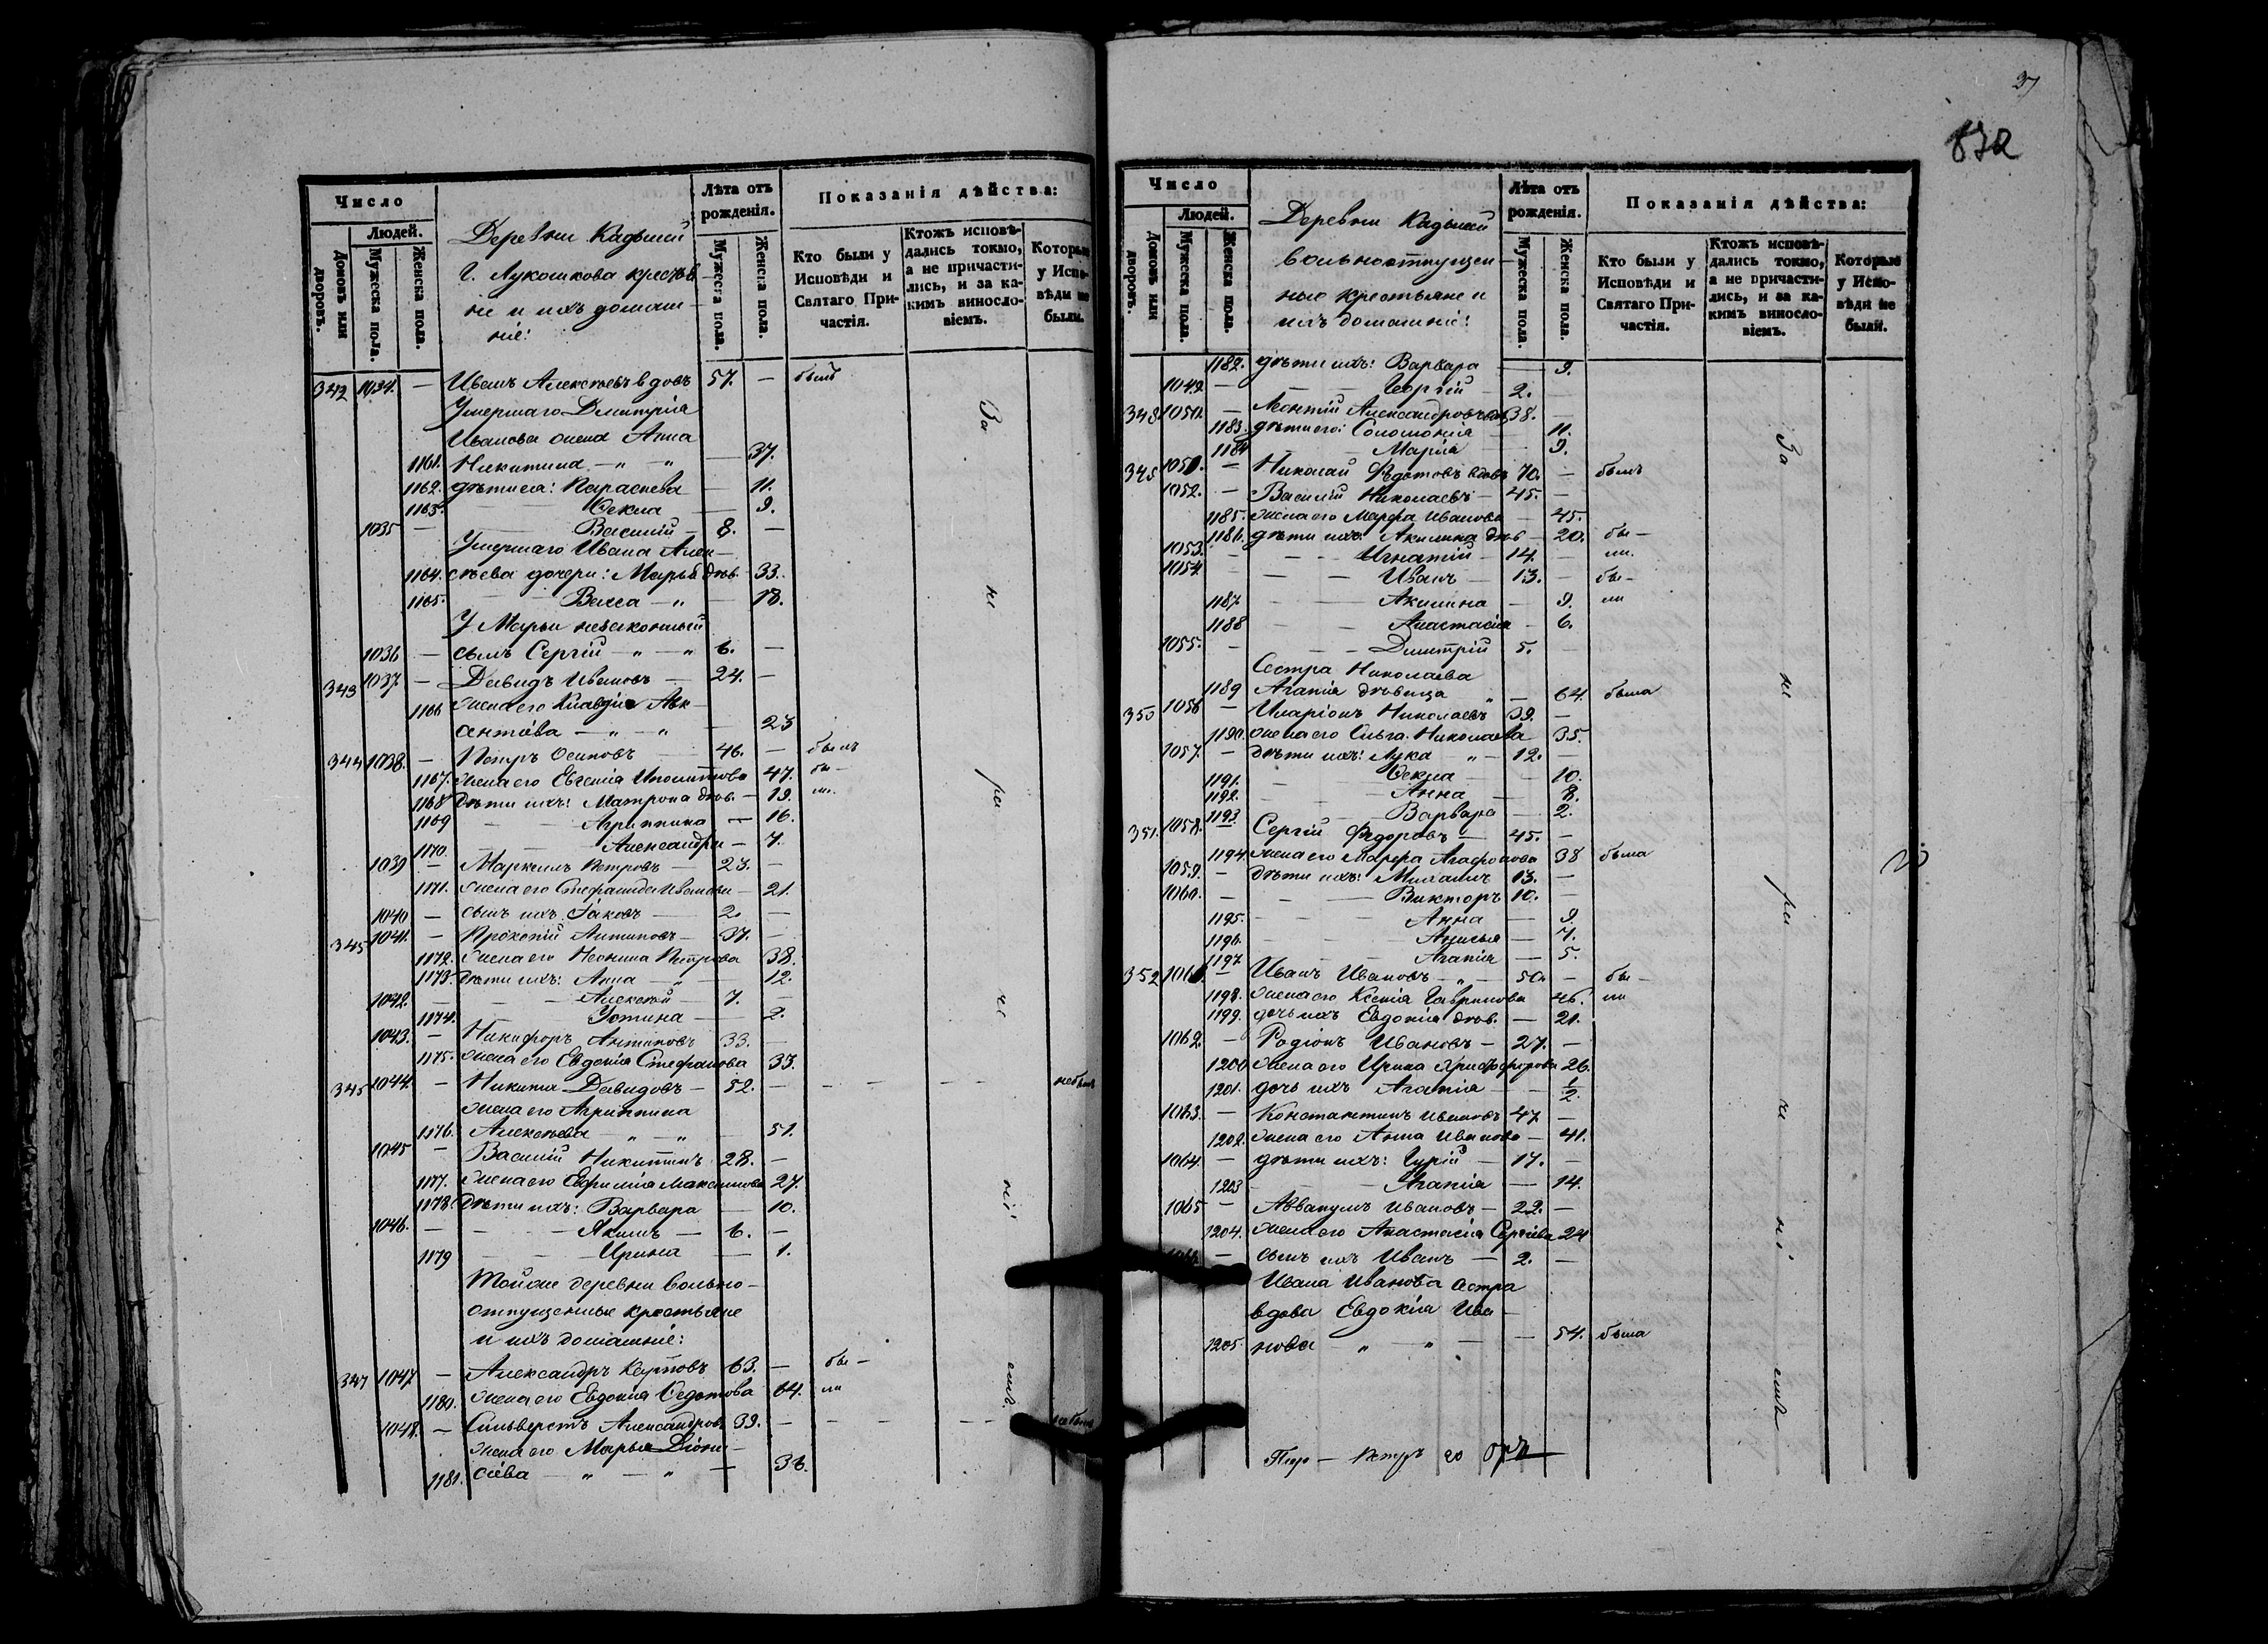 37
832
Число
Людей.
Домовъ или дворовъ.
Мужеска пола.
Женска пола.
Деревни Кадыши
Г. Лукошкова крестья
не и ихъ домаш-
ніе:
Лѣта отъ рожденія.
Мужеска пола.
Женска пола.
Показанія дѣйства:
Кто были у Исповѣди и Святаго Причастія.
Ктожъ исповѣдались токмо, а не причастились, и за какимъ винословіемъ.
Которые у Исповѣди не были.
342 1034. — Иванъ Алексѣевъ вдовъ 57. — былъ
Умершаго Димитрія
Иванова жена Анна
1161. Никитина — „ — „ — 37.
1162. дѣти ея: Параскева — 11.
1163. — — Ѳекла — 9.
1035 — — — Василій — 8. —
Умершаго Ивана Алек-
1164. сѣева дочери: Марья дѣв. — 33.
1165. — — Васса — „ — 18.
У Марьи незаконный
1036 — сынъ Сергій — „ — „ 6. —
343 1037 — Давидъ Ивановъ — 24. —
1166 жена его Клавдія Авк-
сентіева — „ — „ — 23
344 1038. — Петръ Осиповъ — 46. — былъ
1167. жена его Евгенія Ипполитова 47. бы-
1168 Дѣти ихъ: Матрона дѣв. — 19. ли.
1169 — — Агриппина — 16.
1170. — — Александра — 7.
1039 — Маркеллъ Петровъ — 23. —
1171. жена его Стефанида Иванова — 21.
1040 — сынъ ихъ Іаковъ — 2. —
345 1041. — Прокопій Антиповъ — 37. —
1172. жена его Неонила Петрова 38.
1173. Дѣти ихъ: Анна — „ — 12.
1042. — — — Алексѣй — 7. —
1174. — — Устина — 2.
1043. — Никифоръ Антиповъ 33. —
1175. жена его Евдокія Стефанова 33.
345 1044. — Никита Давидовъ — 52. — — — — небылъ
жена его Агриппина
1176. Алексѣева — „ — „ — 51.
1045 — Василій Никитинъ 28. —
1177. жена его Евфимія Максимова 27.
1178. Дѣти ихъ: Варвара — 10.
1046. — — — Якимъ — 6. —
1179 — — Ирина — 1.
Той же деревни вольно-
отпущенные крестьяне
и ихъ домашніе:
347 1047 — Александръ Карповъ 63. — бы-
1180. жена его Евдокія Ѳедотова 64. ли
1048. — Сильверстъ Александровъ 39. — — — — небылъ
жена его Марья Діони-
1181. сіева — „ — „ — 36.
За не ра че ніемъ.
Число
Людей.
Домовъ или дворовъ.
Мужеска пола.
Женска пола.
Деревни Кадыши
вольноотпущен-
ные крестьяне и
ихъ домашніе:
Лѣта отъ рожденія.
Мужеска пола.
Женска пола.
Показанія дѣйства:
Кто были у Исповѣди и Святаго Причастія.
Ктожъ исповѣдались токмо, а не причастились, и за какимъ винословіемъ.
Которые у Исповѣди не были.
1182. дѣти ихъ: Варвара — 9.
1049. — — — Георгій — 2. —
348 1050. — Леонтій Александровъ 38. —
1183. дѣти его: Соломонія — 11.
1184 — — Марія — 9.
345 1051. — Николай Ѳедотовъ вдовъ 70. — былъ
1052. — Василій Николаевъ — 45. —
1185. жена его Марфа Иванова — 45.
1186. дѣти ихъ: Акилина дѣв — 20. бы-
1053. — — — Игнатій — 14. — ли.
1054. — — — Иванъ — 13. — бы-
1187 — — Акилина — 9. ли
1188 — — Анастасія — 6.
1055. — — — Димитрій 5. —
Сестра Николаева
1189 Агапія дѣвица „ — 64. была
350 1056 — Иларіонъ Николаевъ 39. —
1190. жена его Ольга Николаева 35.
1057. — дѣти ихъ: Лука „ — 12. —
1191. — — Ѳекла — 10.
1192. — — Анна — 8.
1193 — — Варвара — 2.
351. 1058. — Сергій Ѳедоровъ — 45. —
1194. жена его Марфа Агафонова 38 была
1059. — дѣти ихъ: Михаилъ 13. —
1060. — — — Викторъ 10. —
1195. — — Анна — 9.
1196. — — Анисья — 7.
1197 — — Агапія — 5.
352 1061 — Иванъ Ивановъ — „ — 50. — бы-
1198. жена его Ксенія Гаврилова 46. ли
1199. дочь ихъ Евдокія дѣв. — 21.
1062. — Родіонъ Ивановъ — 27. —
1200 жена его Ирина Христофорова 26.
1201. дочь ихъ Агапія — 1/2.
1063. — Константинъ Ивановъ 47 —
1202. жена его Анна Иванова — 41.
1064. — дѣти ихъ: Гурій — 17. —
1203 — — Агапія — 14.
1065 — Аввакумъ Ивановъ — 22. —
1204. жена его Анастасія Сергіева 24
1066 — сынъ ихъ Иванъ — 2. —
Ивана Иванова сестра
вдова Евдокія Ива-
1205. нова — „ — „ — — 54. была
За не ра че ніемъ